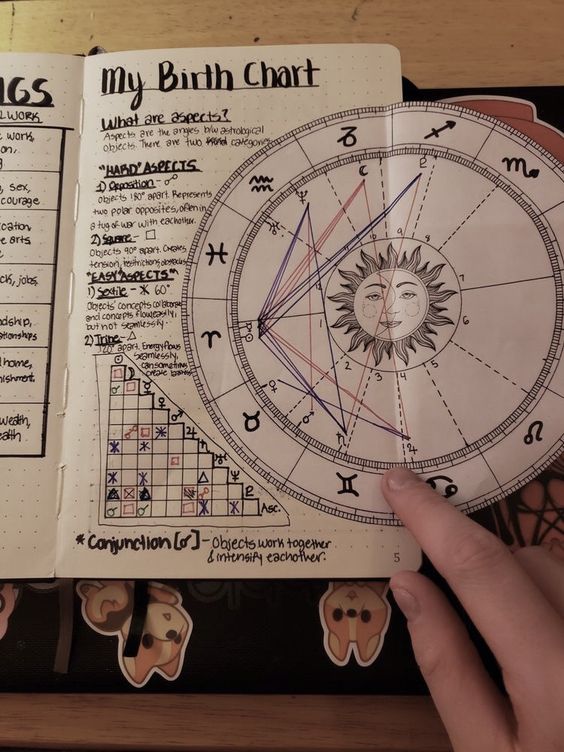 GS
WORK
work,
on,
sex,
courage.
ication,
arts.
ck, jobs,
ndship,
lationships
home,
nishment.
wealth,
ealth.
My Birth Chart
What are aspects?
Aspects are the angles b/w astrological
objects. There are two categories
"HARD" ASPECTS
1) Opposition - ☍
objects 180° apart. Represents
two polar opposites, often in
a tug of war with eachother.
2) Square - □
Objects 90° apart. Creates
tension, restrictions, obstacles
"EASY ASPECTS"
1) Sextile - ⚹ 60°
Objects' concepts collaborate
and concepts flow easily,
but not seamlessly.
2) Trine - △
120° apart. Energy flows
seamlessly,
can sometimes
create
Asc.
* Conjunction [☌] - Objects work together
& intensify eachother.
5
1
2
3
4
5
6
7
8
9